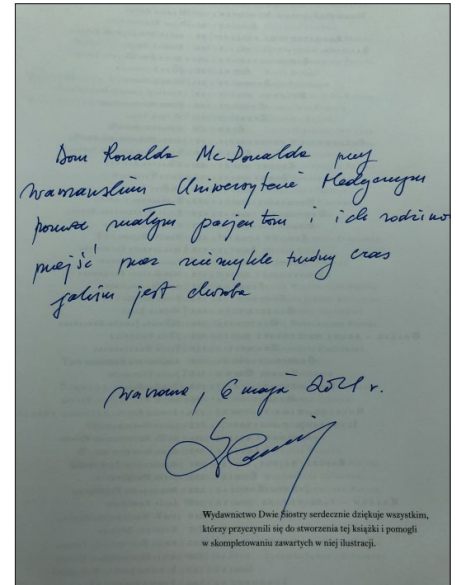 Dom Ronalda McDonalda przy
Warszawskim Uniwersytecie Medycznym
pomoże małym pacjentom i ich rodzinom
przejść przez niezwykle trudny czas
jakim jest choroba
Warszawa, 6 maja 2021 r.
Wydawnictwo Dwie Siostry serdecznie dziękuje wszystkim,
którzy przyczynili się do stworzenia tej książki i pomogli
w skompletowaniu zawartych w niej ilustracji.